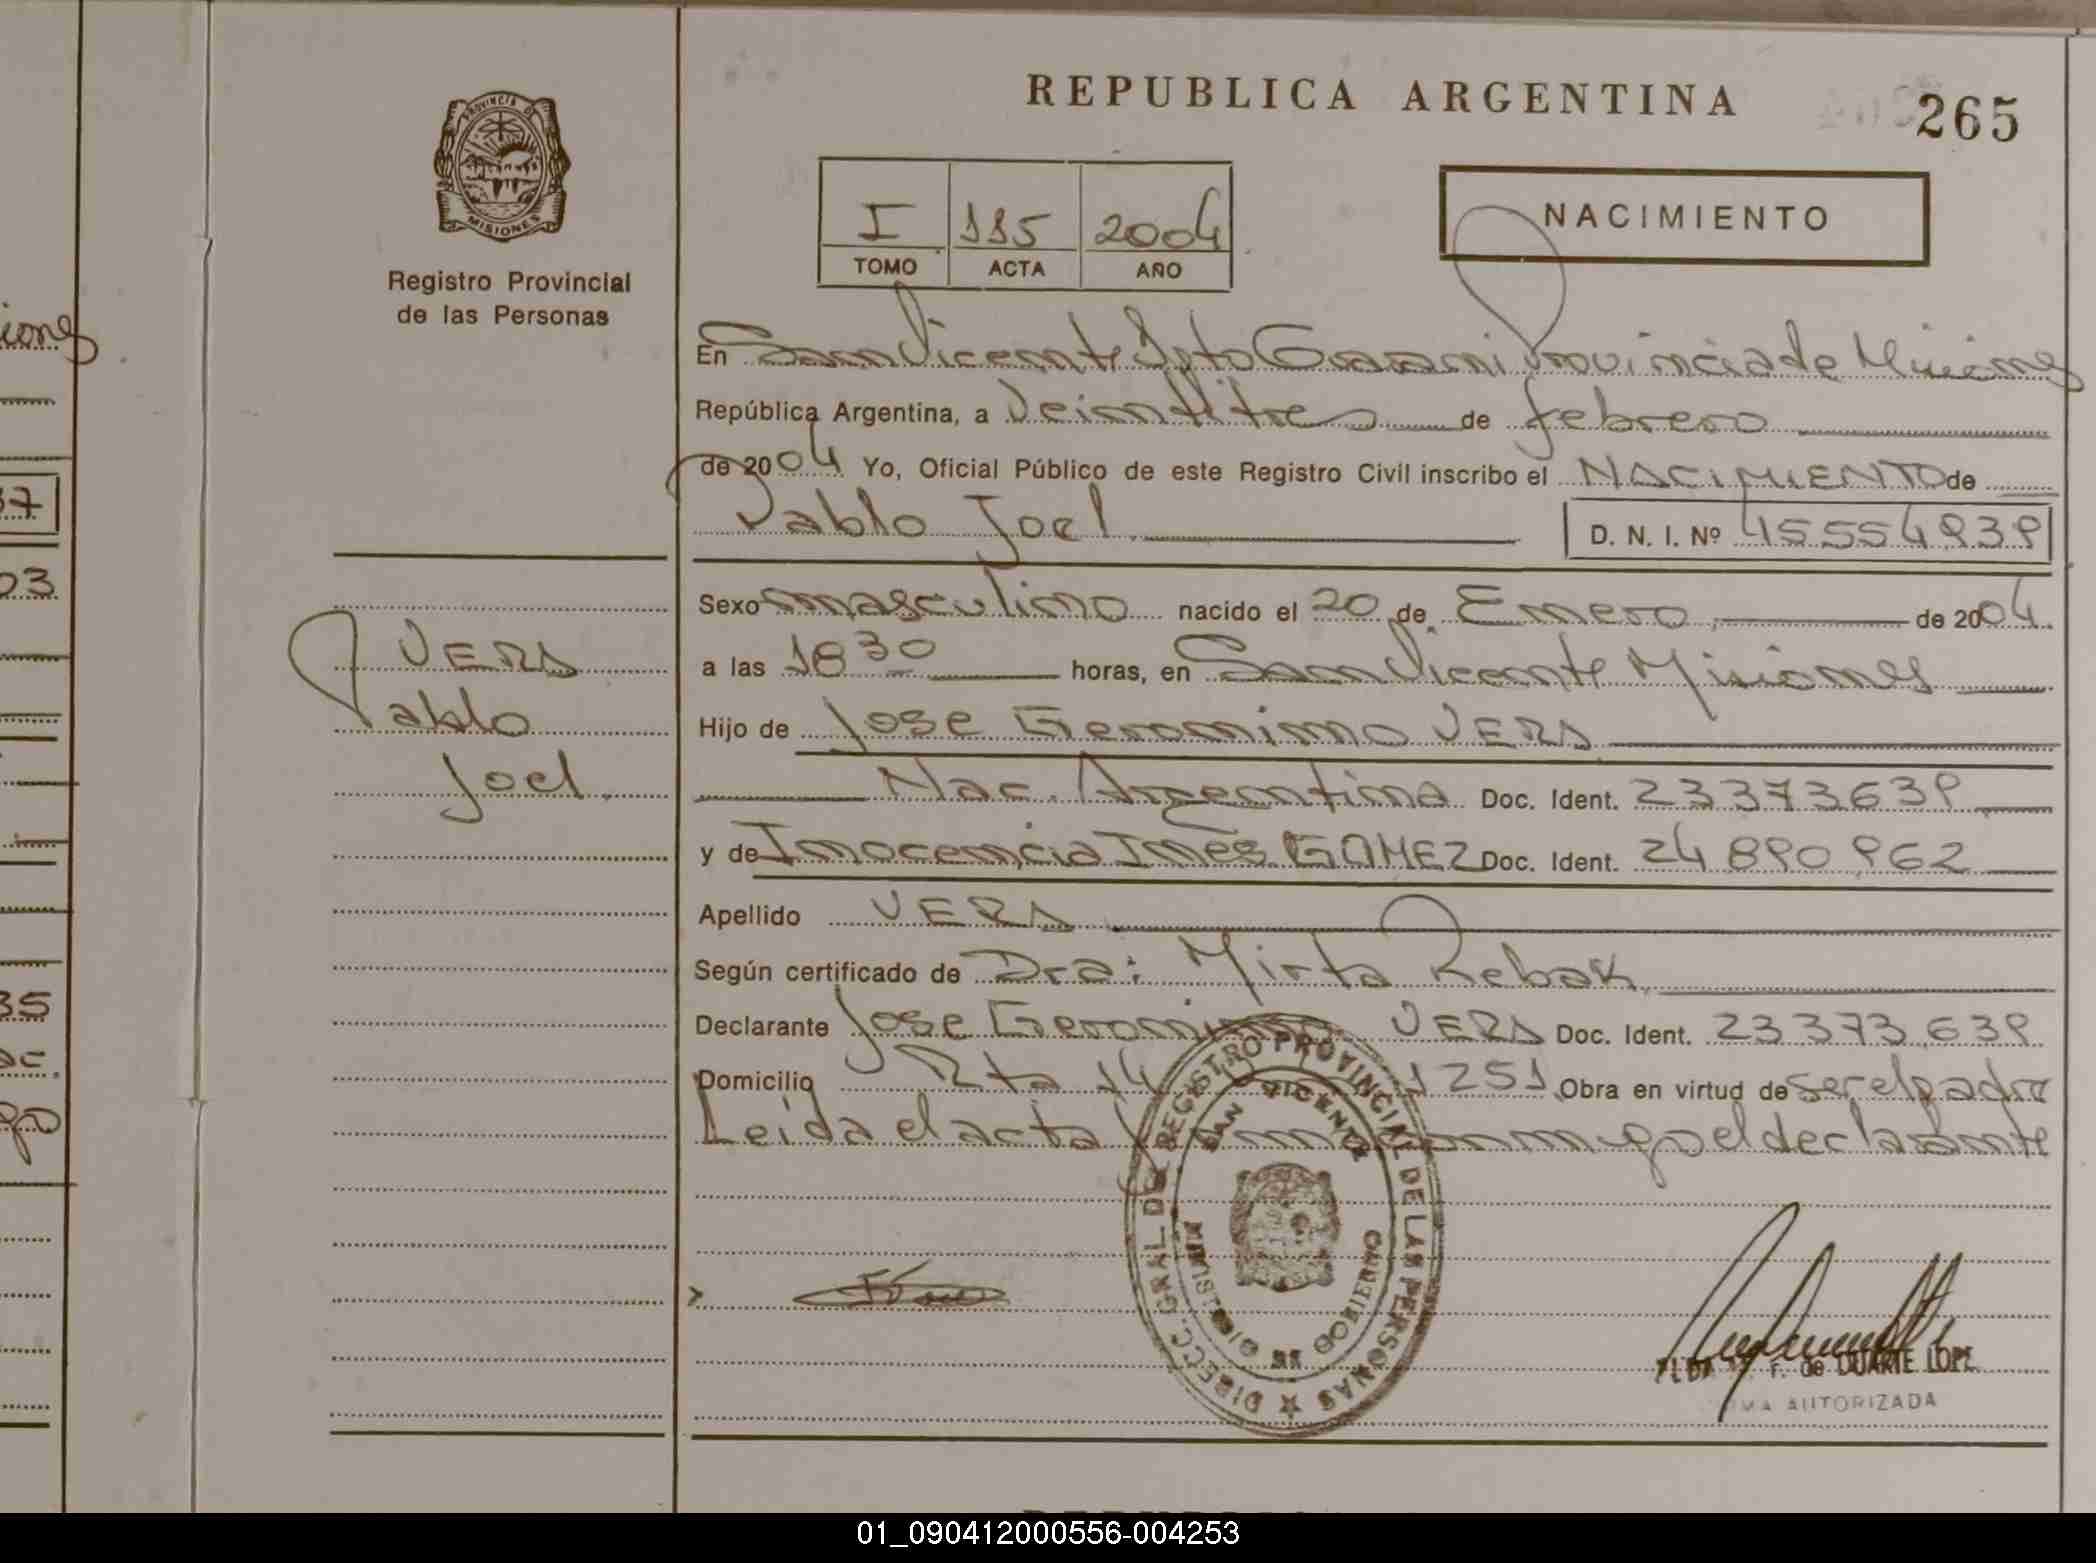 REPUBLICA ARGENTINA
265
PROVINCIA DE
MISIONES
Registro Provincial
de las Personas
I 115 2004
TOMO ACTA AÑO
NACIMIENTO
En San Vicente Dpto Guarani Provincia de Misiones
República Argentina, a Veintitres de febrero
de 2004 Yo, Oficial Público de este Registro Civil inscribo el NACIMIENTO de
Pablo Joel D. N. I. Nº 45554939
Sexo masculino nacido el 20 de Enero de 2004
a las 1830 horas, en San Vicente Misiones
Hijo de Jose Geronimo VERA
Nac. Argentina Doc. Ident. 23373639
y de Inocencia Inés GOMEZ Doc. Ident. 24890962
Apellido VERA
Según certificado de Dra: Mirta Rebak
Declarante Jose Geronimo VERA Doc. Ident. 23373639
Domicilio Rta 14 1251 Obra en virtud de ser el padre
Leida el acta firma conmigo el declarante
VERA
Pablo
Joel
DIRECC. GRAL. DE REGISTRO PROVINCIAL DE LAS PERSONAS
SAN VICENTE
MINISTERIO DE GOBIERNO
F. de DUARTE LOPE
MA AUTORIZADA
iones
37
03
35
ac.
go
01_090412000556-004253